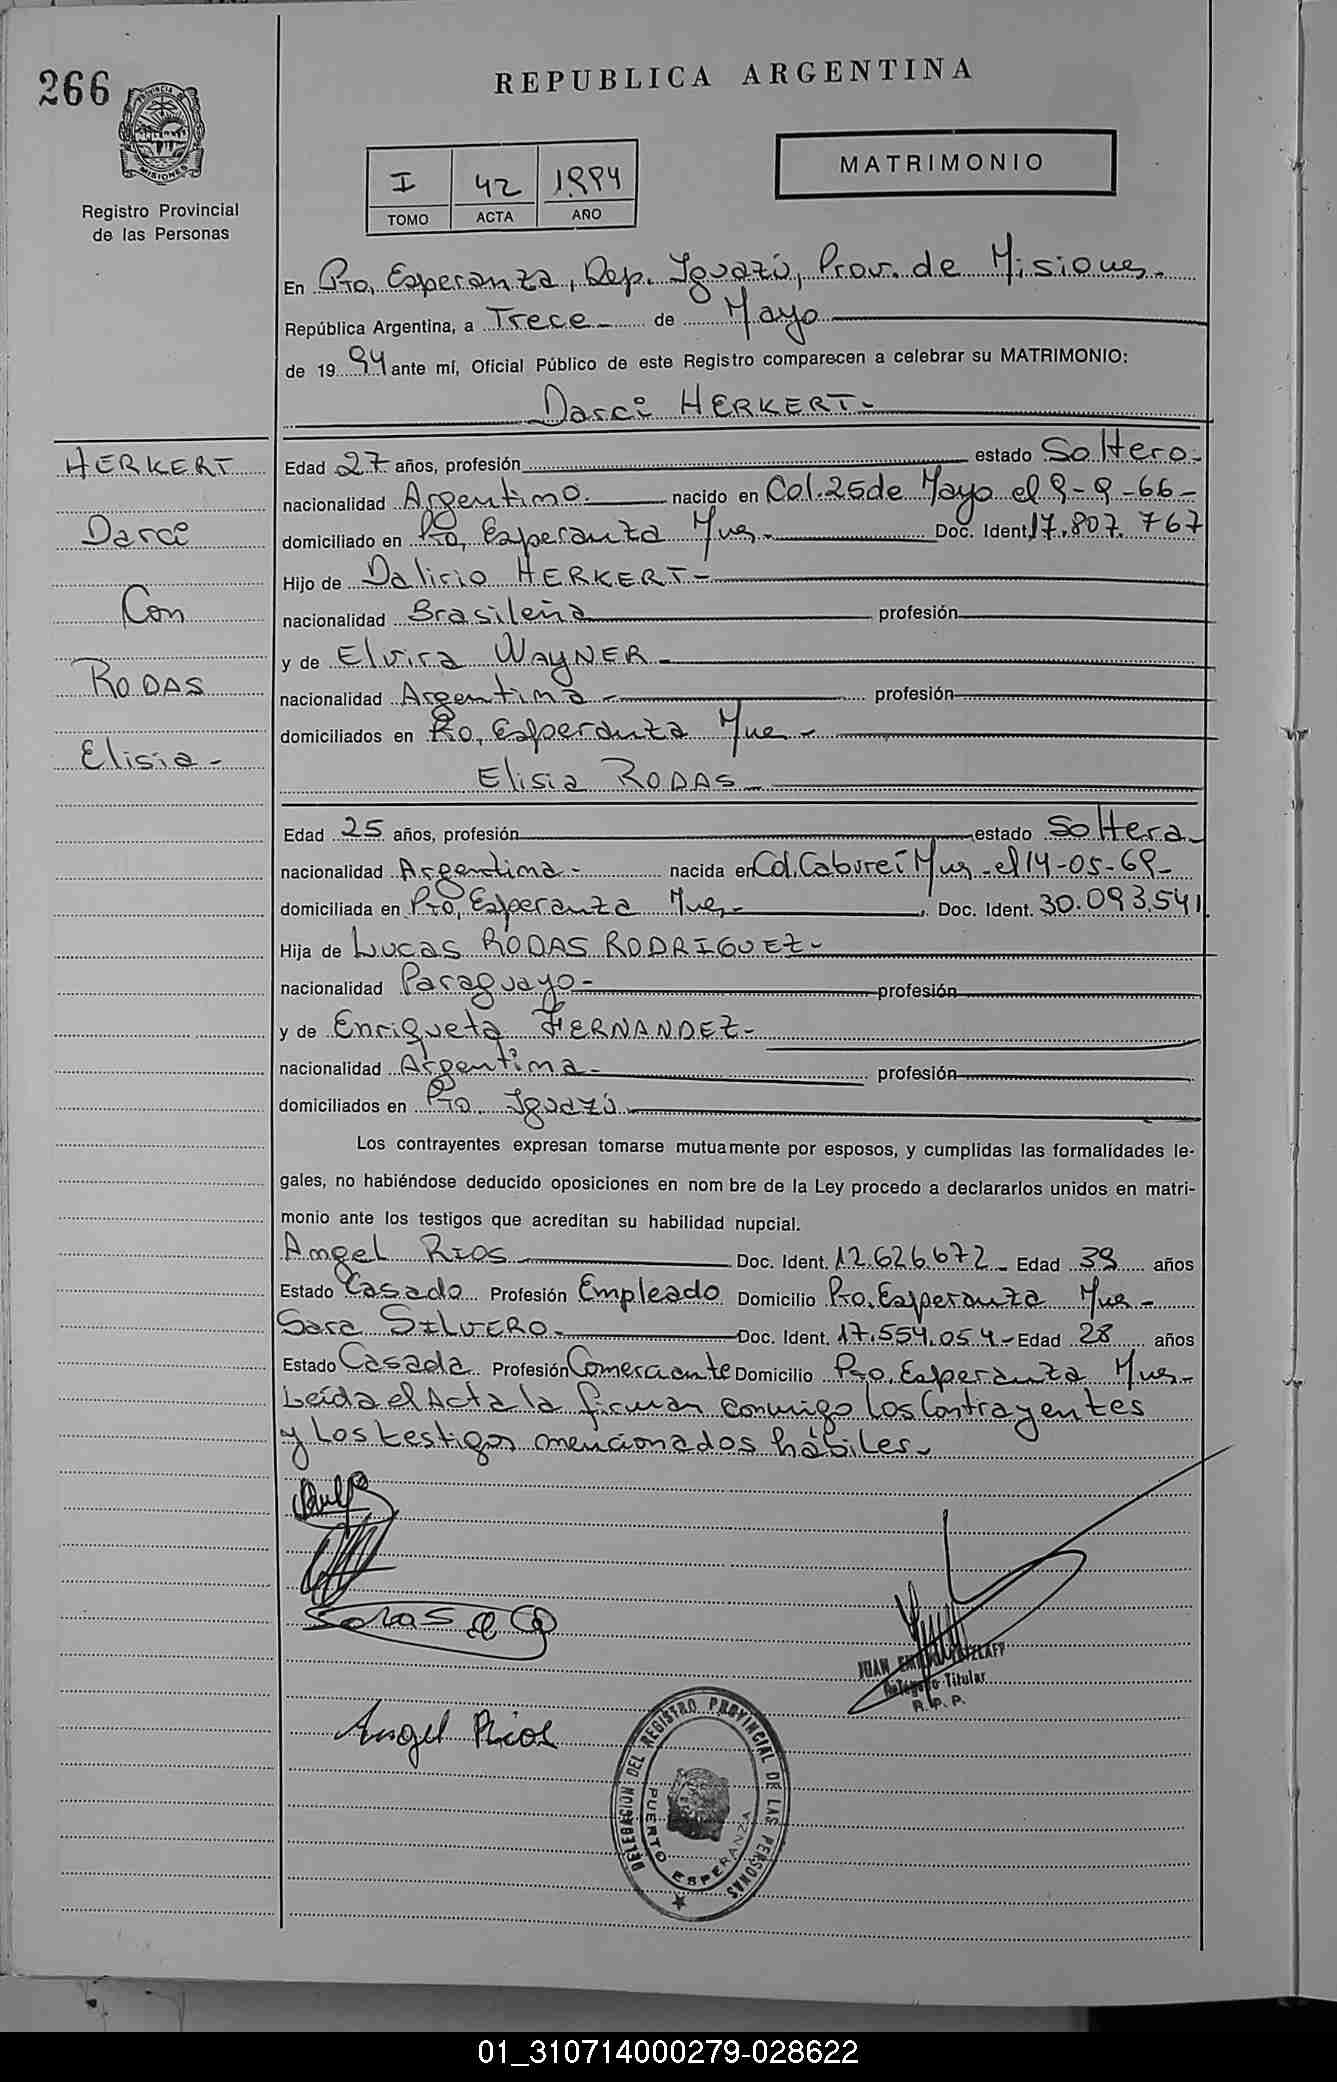 266
REPUBLICA ARGENTINA
PROVINCIA DE
MISIONES
Registro Provincial
de las Personas
I 42 1994
TOMO ACTA AÑO
MATRIMONIO
En Pto. Esperanza, Dep. Iguazú, Prov. de Misiones.
República Argentina, a Trece de Mayo
de 1994 ante mí, Oficial Público de este Registro comparecen a celebrar su MATRIMONIO:
Darci HERKERT-
HERKERT
Darci
Con
RODAS
Elisia -
Edad 27 años, profesión estado Soltero-
nacionalidad Argentino. nacido en Col. 25 de Mayo el 9-9-66-
domiciliado en Pto. Esperanza Mnes.- Doc. Ident. 17.807.767
Hijo de Dalirio HERKERT-
nacionalidad Brasileña profesión
y de Elvira WAYNER-
nacionalidad Argentina - profesión
domiciliados en Pto. Esperanza Mnes -
Elisia RODAS-
Edad 25 años, profesión estado Soltera
nacionalidad Argentina- nacida en Col. Cabureí Mnes - el 14-05-69-
domiciliada en Pto. Esperanza Mnes- Doc. Ident. 30.093.541
Hija de Lucas RODAS RODRIGUEZ-
nacionalidad Paraguayo- profesión
y de Enriqueta FERNANDEZ-
nacionalidad Argentina- profesión
domiciliados en Pto. Iguazú
Los contrayentes expresan tomarse mutuamente por esposos, y cumplidas las formalidades le-
gales, no habiéndose deducido oposiciones en nom bre de la Ley procedo a declararlos unidos en matri-
monio ante los testigos que acreditan su habilidad nupcial.
Angel RIOS Doc. Ident. 12.626.672- Edad 39 años
Estado Casado Profesión Empleado Domicilio Pto. Esperanza Mnes -
Sara SILVERO- Doc. Ident. 17.554.054- Edad 28 años
Estado Casada Profesión Comerciante Domicilio Pto. Esperanza Mnes-
Leída el Acta la firman conmigo los Contrayentes
y los testigos mencionados hábiles-
JUAN
Delegado Titular
R. P. P.
Angel Rios
DELEGACION DEL REGISTRO PROVINCIAL DE LAS PERSONAS
PUERTO ESPERANZA
01_310714000279-028622